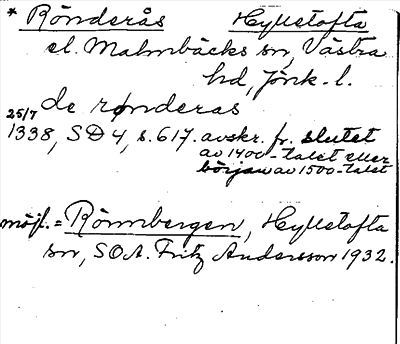 * Rönderås Hyllstofta
el. Malmbäcks sn, Västra
hd, Jönk. l.
de rønderas
25/7
1338, SD 4, s. 617. avskr. fr. slutet
av 1400-talet eller
början av 1500-talet
möjl. = Rönnbergen, Hyllstofta
sn, SOA. Fritz Andersson 1932.